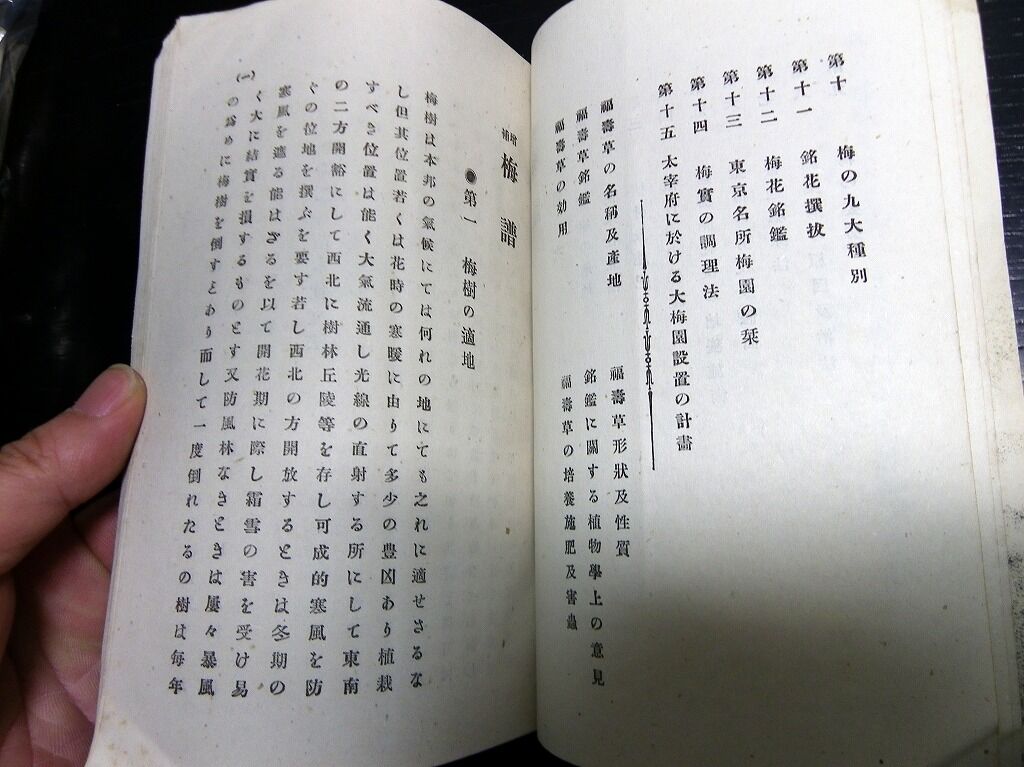 第十　梅の九大種別
第十一　銘花撰拔
第十二　梅花銘鑑
第十三　東京名所梅園の栞
第十四　梅實の調理法
第十五　太宰府に於ける大梅園設置の計畫
福壽草の名稱及產地　福壽草形狀及性質
福壽草銘鑑　銘鑑に關する植物學上の意見
福壽草の効用　福壽草の培養施肥及害蟲
增補　梅譜
●第一　梅樹の適地
梅樹は本邦の氣候にては何れの地にても之れに適せさるな
し但其位置若くは花時の寒暖に由りて多少の豊凶あり植栽
すべき位置は能く大氣流通し光線の直射する所にして東南
の二方開豁にして西北に樹林丘陵等を存し可成的寒風を防
ぐの位地を撰ぶを要す若し西北の方開放するときは冬期の
寒風を遮る能はざるを以て開花期に際し霜雪の害を受け易
く大に結實を損するものとす又防風林なきときは屢々暴風
の爲めに梅樹を倒すとあり而して一度倒れたるの樹は每年
(一)